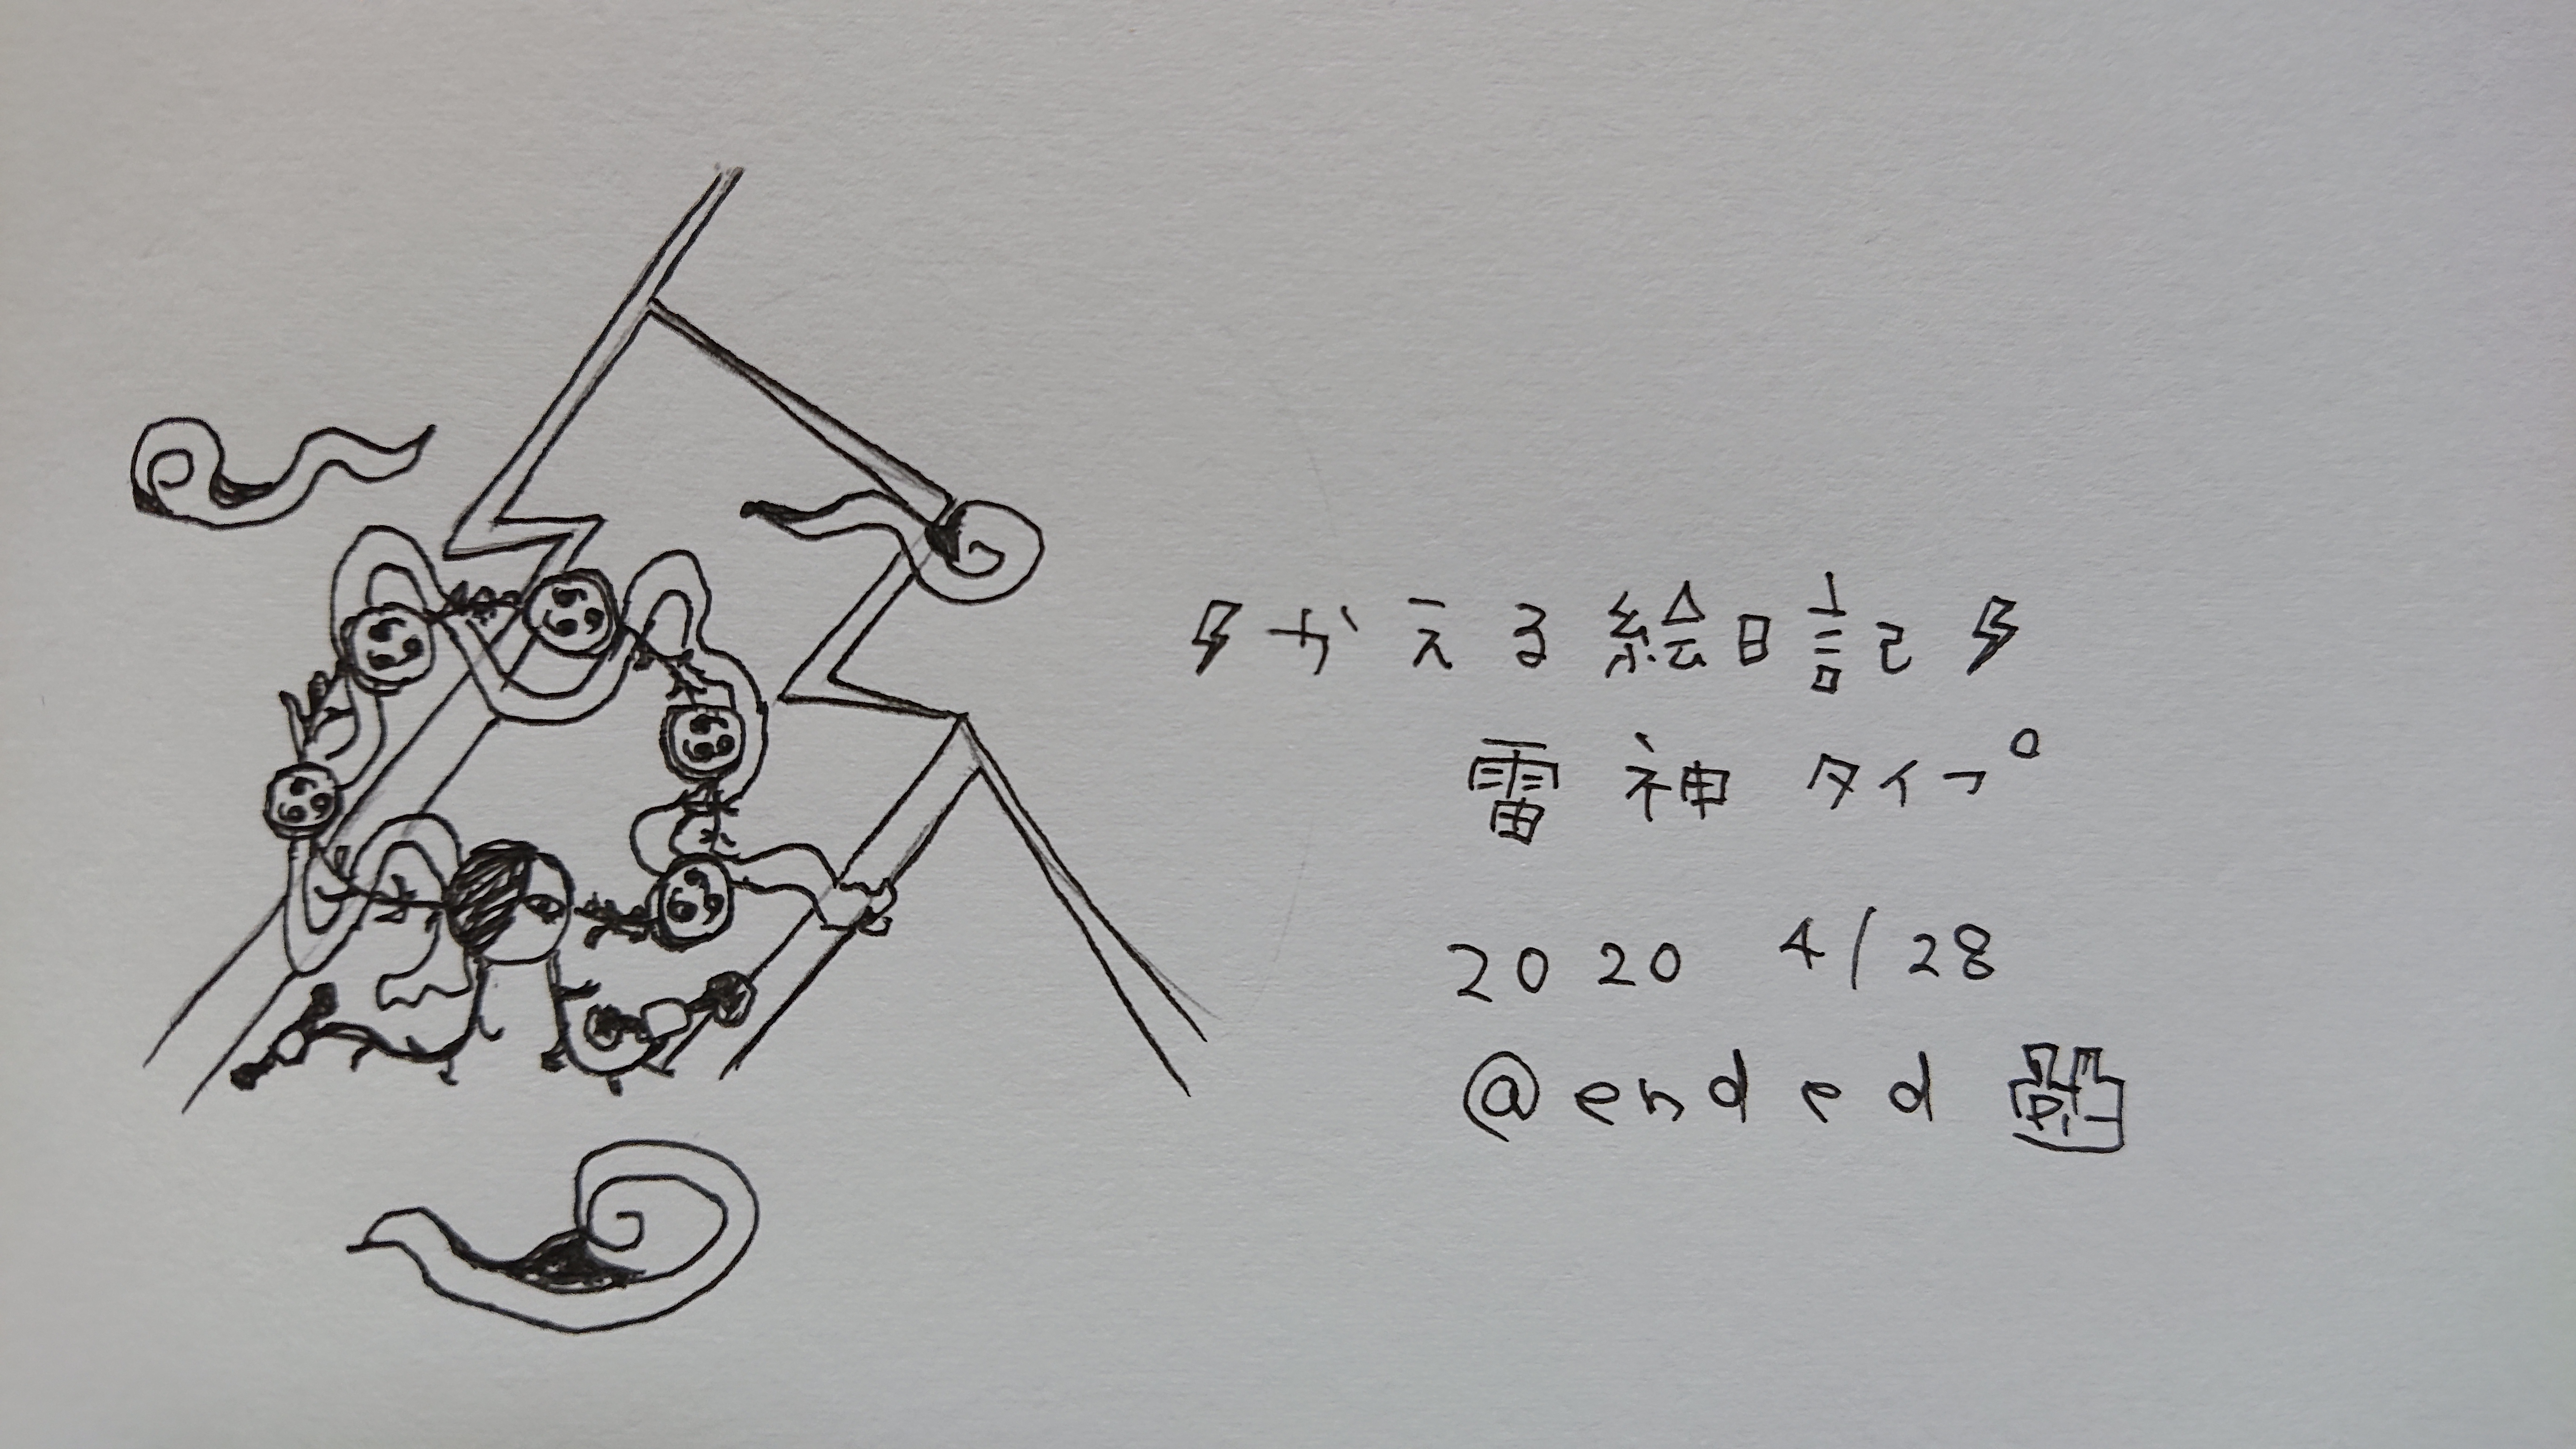 ⚡かえる絵日記⚡
雷神タイプ
2020 4/28
@ended